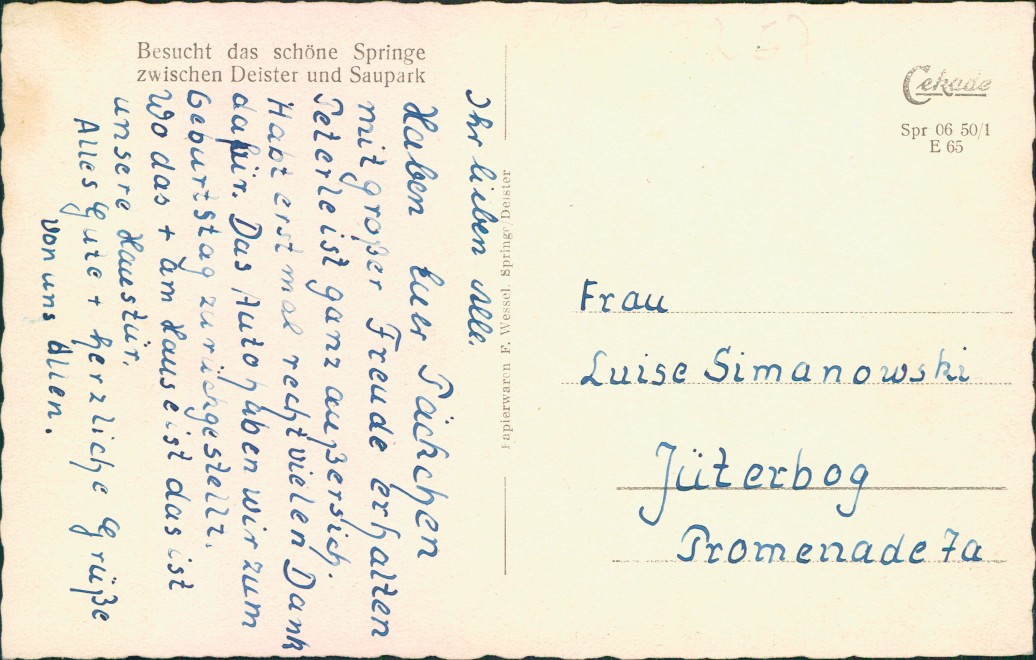 Besucht das schöne Springe
zwischen Deister und Saupark
Ihr lieben Alle.
Haben Euer Päckchen
mit großer Freude erhalten
Peterle ist ganz außersich.
Habt erst mal recht vielen Dank
dafür. Das Auto haben wir zum
Geburtstag zurückgestellt.
Wo das + am Hause ist das ist
unsere Haustür.
Alles Gute + herzliche Grüße
von uns Allen.
Papierwaren F. Wessel, Springe/Deister
Cekade
Spr 06 50/1
E 65
Frau
Luise Simanowski
Jüterbog
Promenade 7a